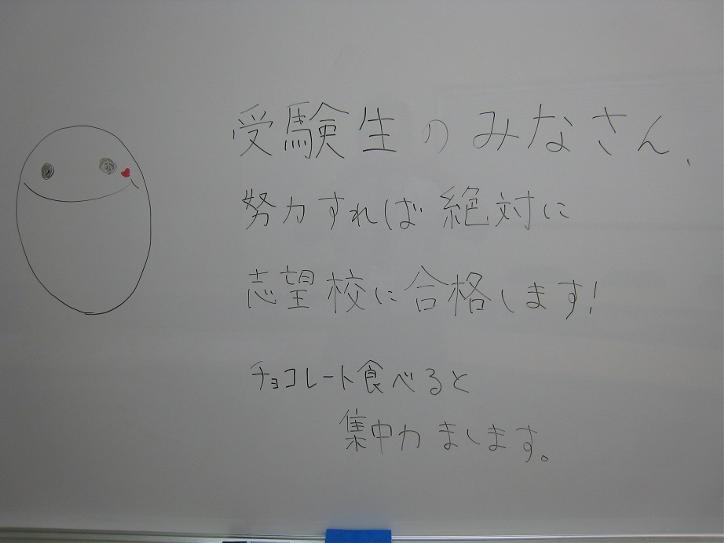 受験生のみなさん、
努力すれば絶対に
志望校に合格します!
チョコレート食べると
集中力まします。